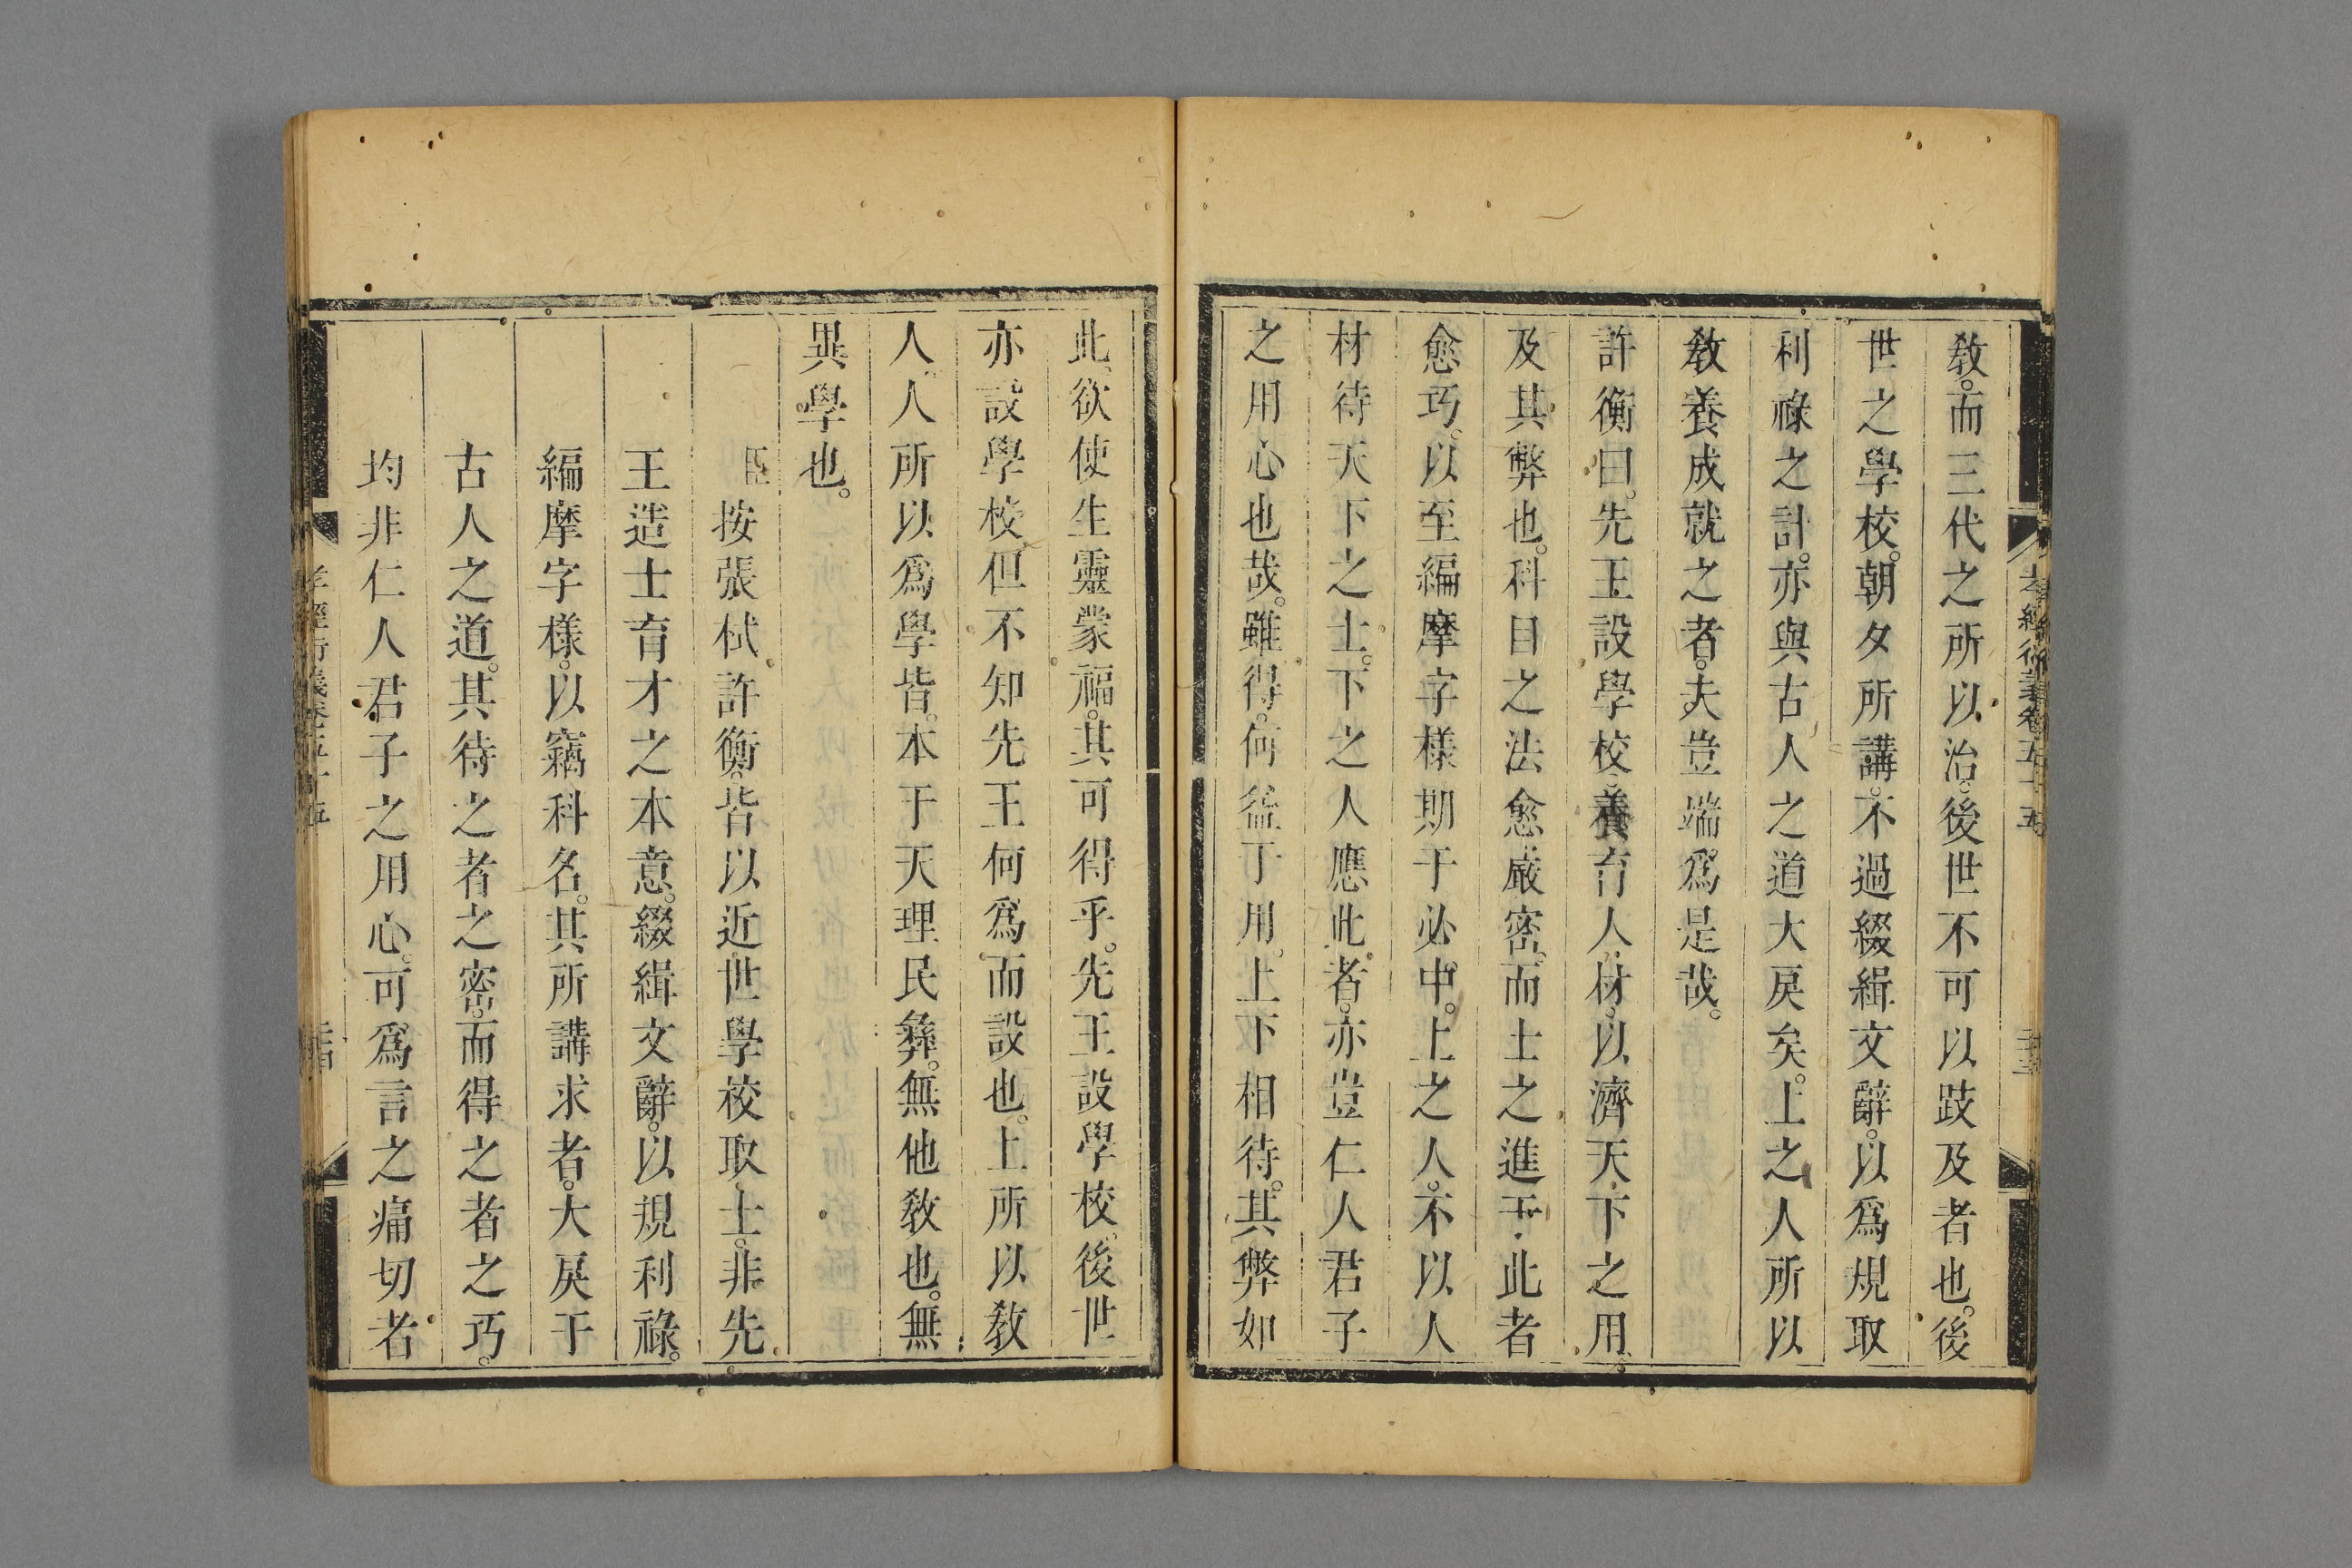 教。而三代之所以治。後世不可以跂及者也。後
世之學校。朝夕所講。不過綴緝文辭。以爲規取
利祿之計。亦與古人之道大戾矣。上之人所以
教養成就之者。夫豈端爲是哉。
許衡曰。先王設學校。養育人材。以濟天下之用。
及其弊也。科目之法愈嚴密。而士之進于此者
愈巧。以至編摩字様期于必中。上之人。不以人
材待天下之士。下之人應此者。亦豈仁人君子
之用心也哉。雖得。何益于用。上下相待。其弊如
此。欲使生靈蒙福。其可得乎。先王設學校。後世
亦設學校。但不知先王何爲而設也。上所以教
人。人所以爲學。皆本于天理民彝。無他教也。無
異學也。
臣按張栻許衡。皆以近世學校取士。非先
王造士育才之本意。綴緝文辭。以規利祿。
編摩字様。以竊科名。其所講求者。大戾于
古人之道。其待之者之密。而得之者之巧。
均非仁人君子之用心。可爲言之痛切者
孝經衍義卷五十五